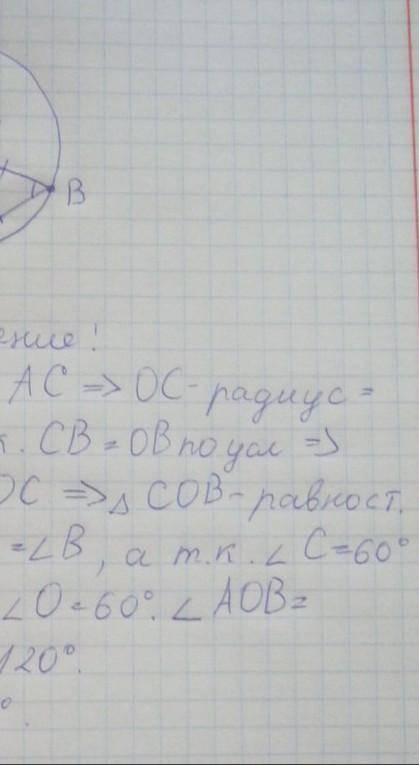 B
ение!
AC => OC - радиус =
к. CB = OB по усл =>
OC => △ COB - равност.
= ∠B, а т.к. ∠C = 60°
∠O = 60°. ∠AOB =
120°.
°.